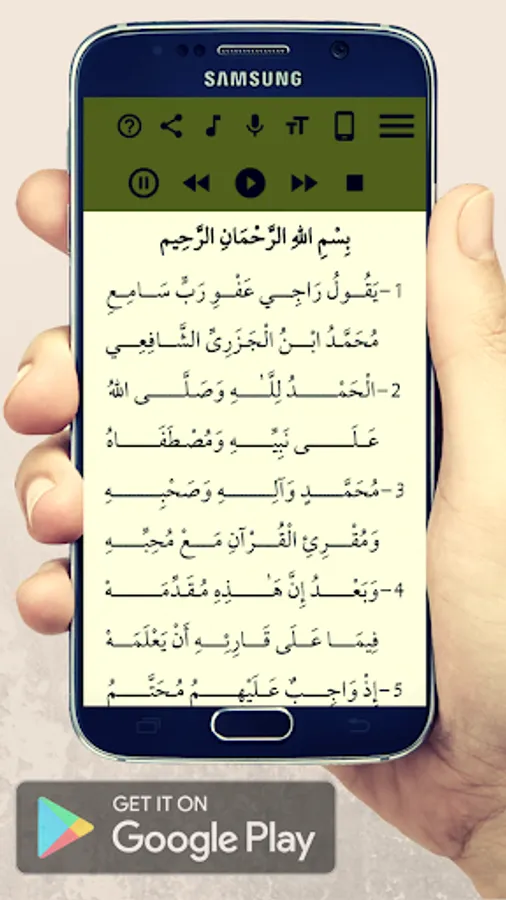 SAMSUNG
بِسْمِ اللهِ الرَّحْمَانِ الرَّحِيم
1-يَقُـولُ رَاجِـي عَفْـوِ رَبٍّ سَـامِـعِ
مُحَمَّدُ ابْـنُ الْجَزَرِيِّ الشَّـافِعِـي
2-الْحَمْـدُ لِلَّـٰـهِ وَصَلَّـى اللهُ
عَـلَـى نَبِيِّـهِ وَمُصْطَفَـاهُ
3-مُحَمَّـدٍ وَآلِـهِ وَصَحْبِـهِ
وَمُقْـرِئِ الْقُـرْآنِ مَـعْ مُحِبِّـهِ
4-وَبَعْـدُ إِنَّ هَـٰـذِهِ مُقَدِّمَـهْ
فِيمَـا عَلَى قَـارِئِـهِ أَنْ يَعْلَمَـهْ
5-إِذْ وَاجِـبٌ عَلَيْهِـمُ مُحَتَّـمُ
GET IT ON
Google Play